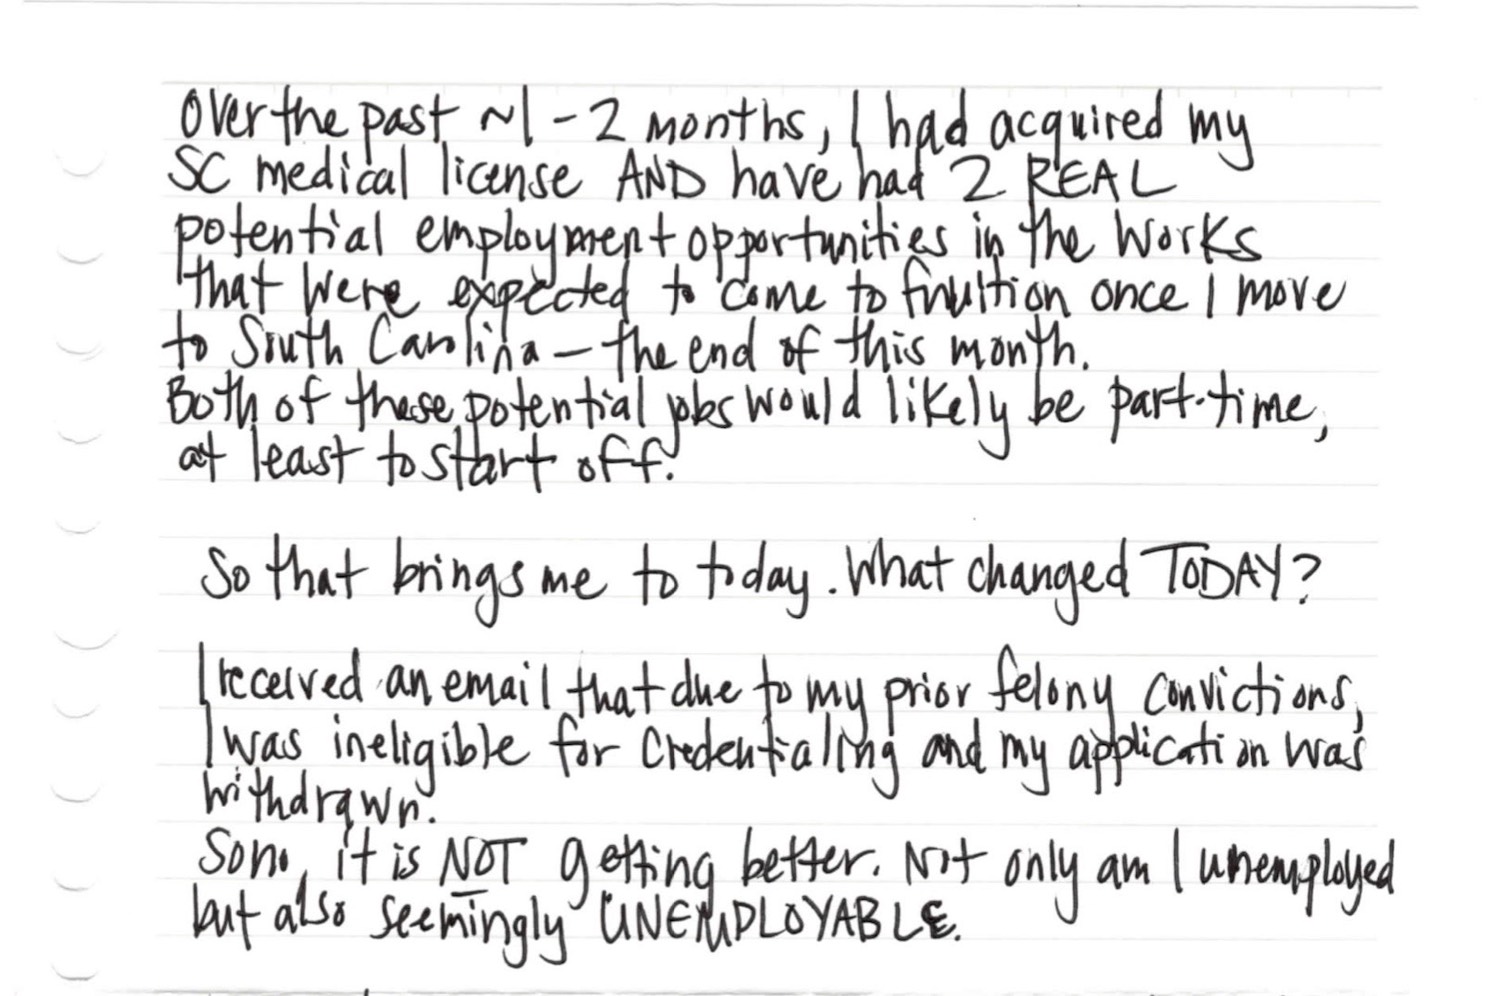 Over the past ~1-2 months, I had acquired my
SC medical license AND have had 2 REAL
potential employment opportunities in the works
that were expected to come to fruition once I move
to South Carolina - the end of this month.
Both of these potential jobs would likely be part-time,
at least to start off.
So that brings me to today. What changed TODAY?
I received an email that due to my prior felony convictions,
I was ineligible for credentialing and my application was
withdrawn.
So no, it is NOT getting better. Not only am I unemployed
but also seemingly UNEMPLOYABLE.